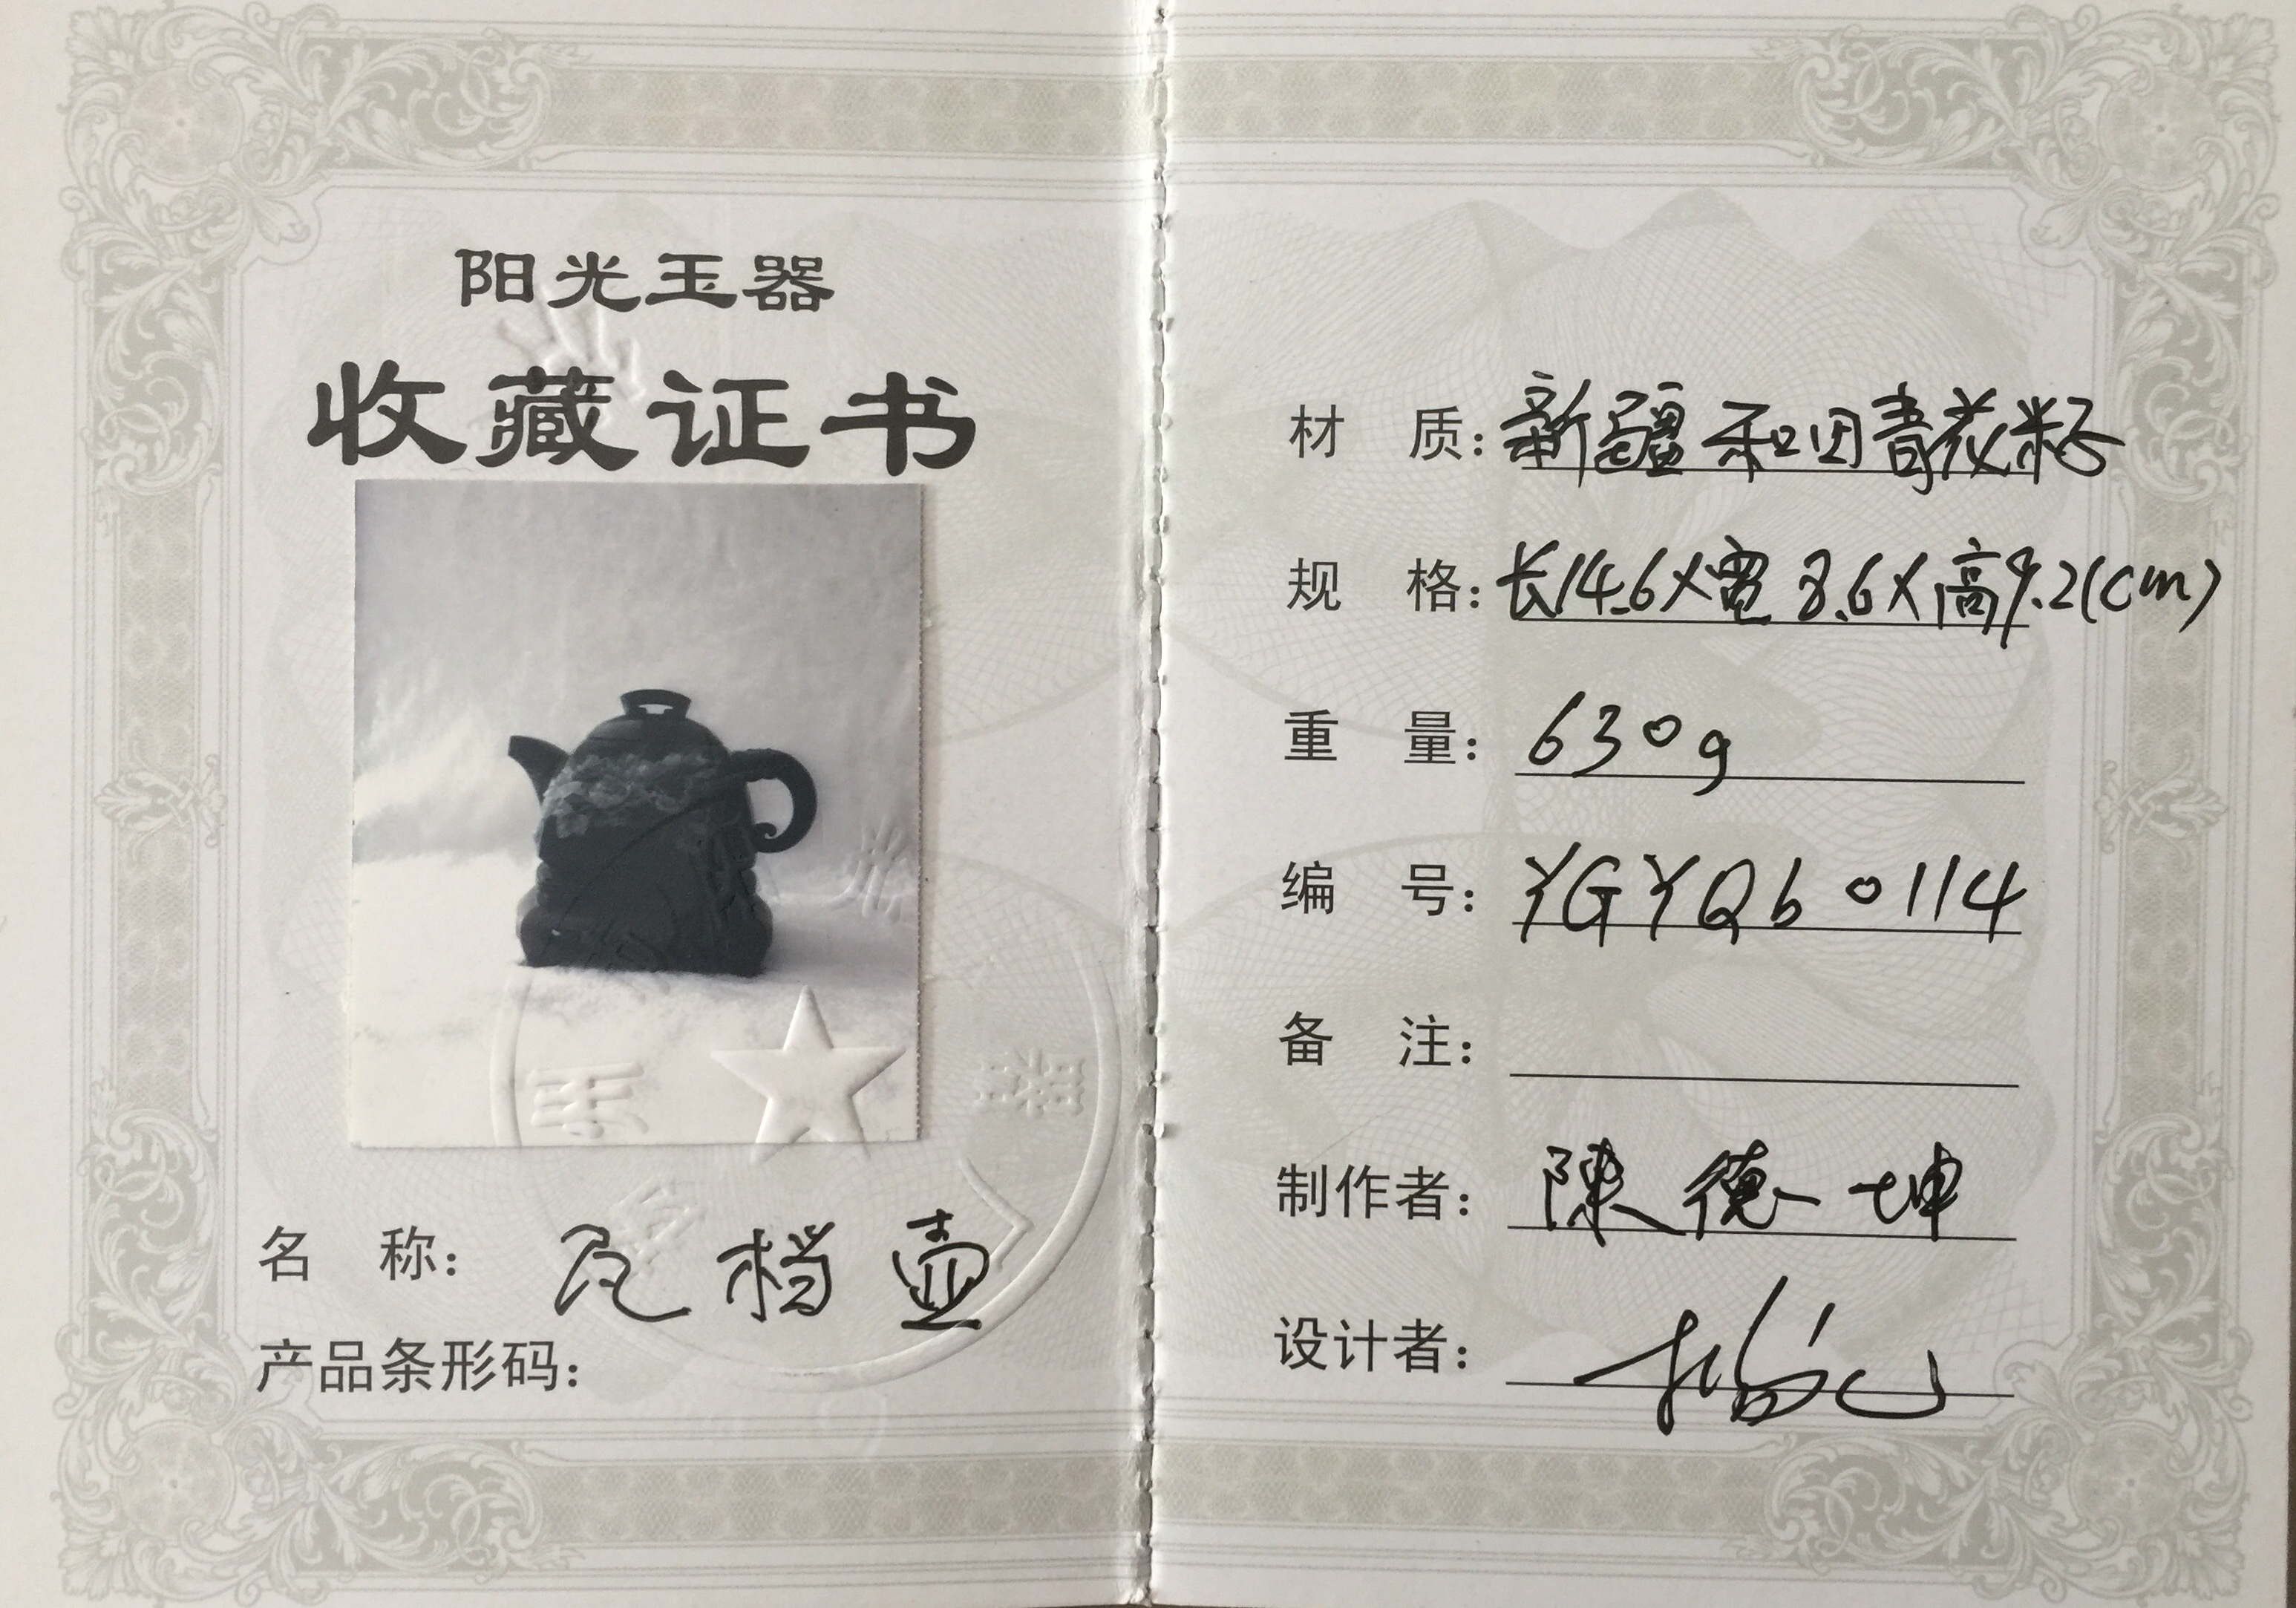 阳光玉器
收藏证书
名 称： 瓦档壶
产品条形码：
材 质：新疆和田青花籽
规 格：长14.6X宽8.6X高9.2(cm)
重 量：630g
编 号：YGYQb0114
备 注：
制作者：陳德坤
设计者：